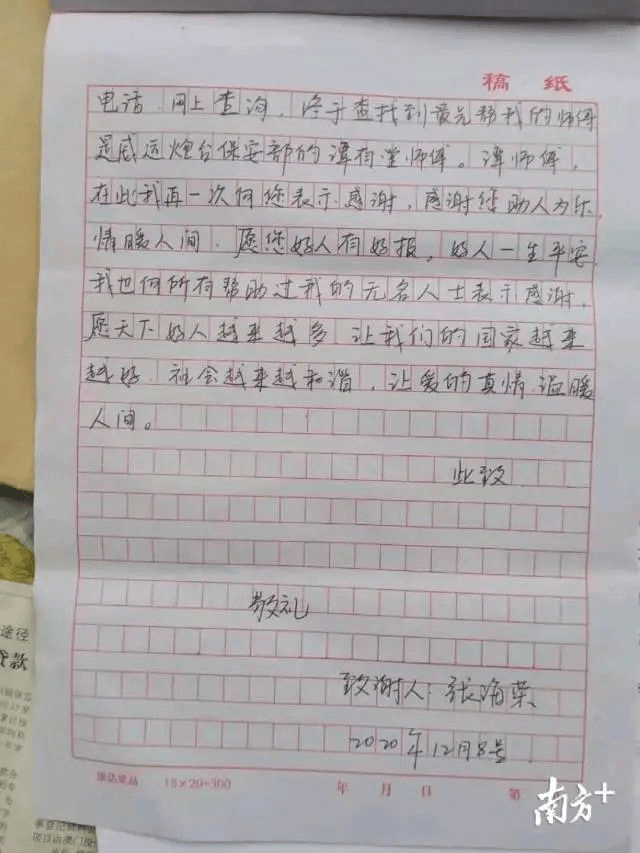 稿 纸
电话、网上查询，终于查找到最先帮我的师傅
是威远炮台保安部的谭有堂师傅。谭师傅，
在此我再一次向您表示感谢，感谢您助人为乐，
情暖人间，愿您好人有好报，好人一生平安
我也向所有帮助过我的无名人士表示感谢，
愿天下好人越来越多 让我们的国家越来
越好 社会越来越和谐，让爱的真情 温暖
人间。
此致
敬礼
致谢人：张海荣
2020年12月8号
15×20=300 年 月 日 第
南方+
途径